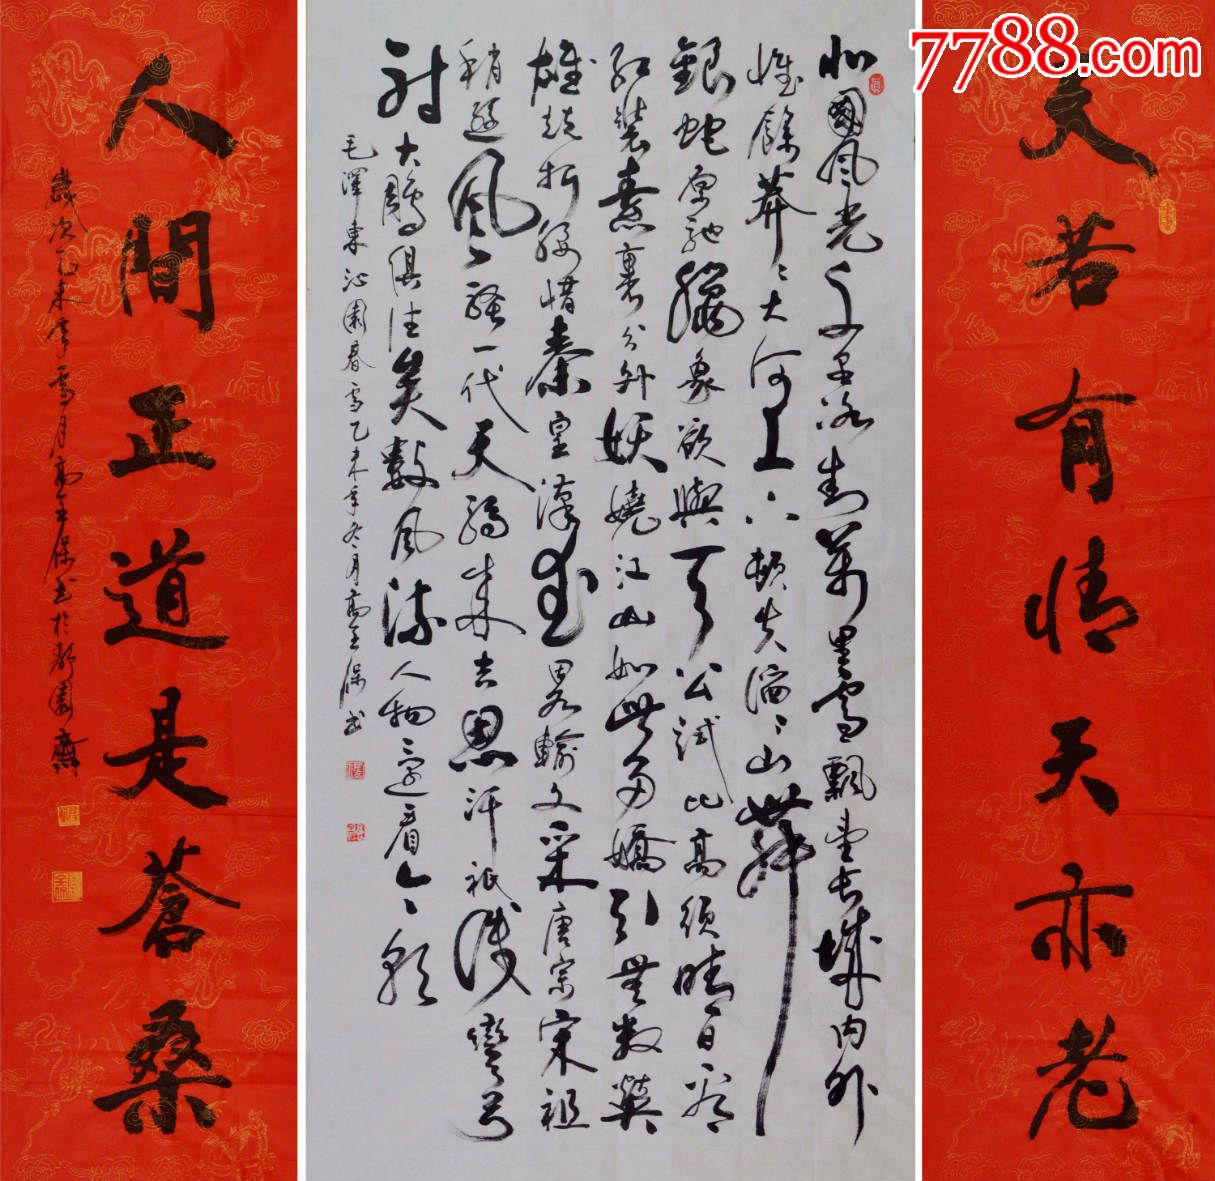 7788.com
天若有情天亦老
北國風光千里冰封萬里雪飄望長城內外
惟餘莽〻大河上下頓失滔〻山舞
銀蛇原馳臘象欲與天公試比高須晴日看
紅裝素裹分外妖嬈江山如此多嬌引無數英
雄競折腰惜秦皇漢武畧輸文采唐宗宋祖
稍遜風〻騷一代天驕成吉思汗祇識彎弓
射大鵰俱往矣數風流人物還看今〻朝
毛澤東沁園春雪乙未年冬月高 保書
人間正道是蒼桑
歲次乙未年雪月高 保書於 園齋